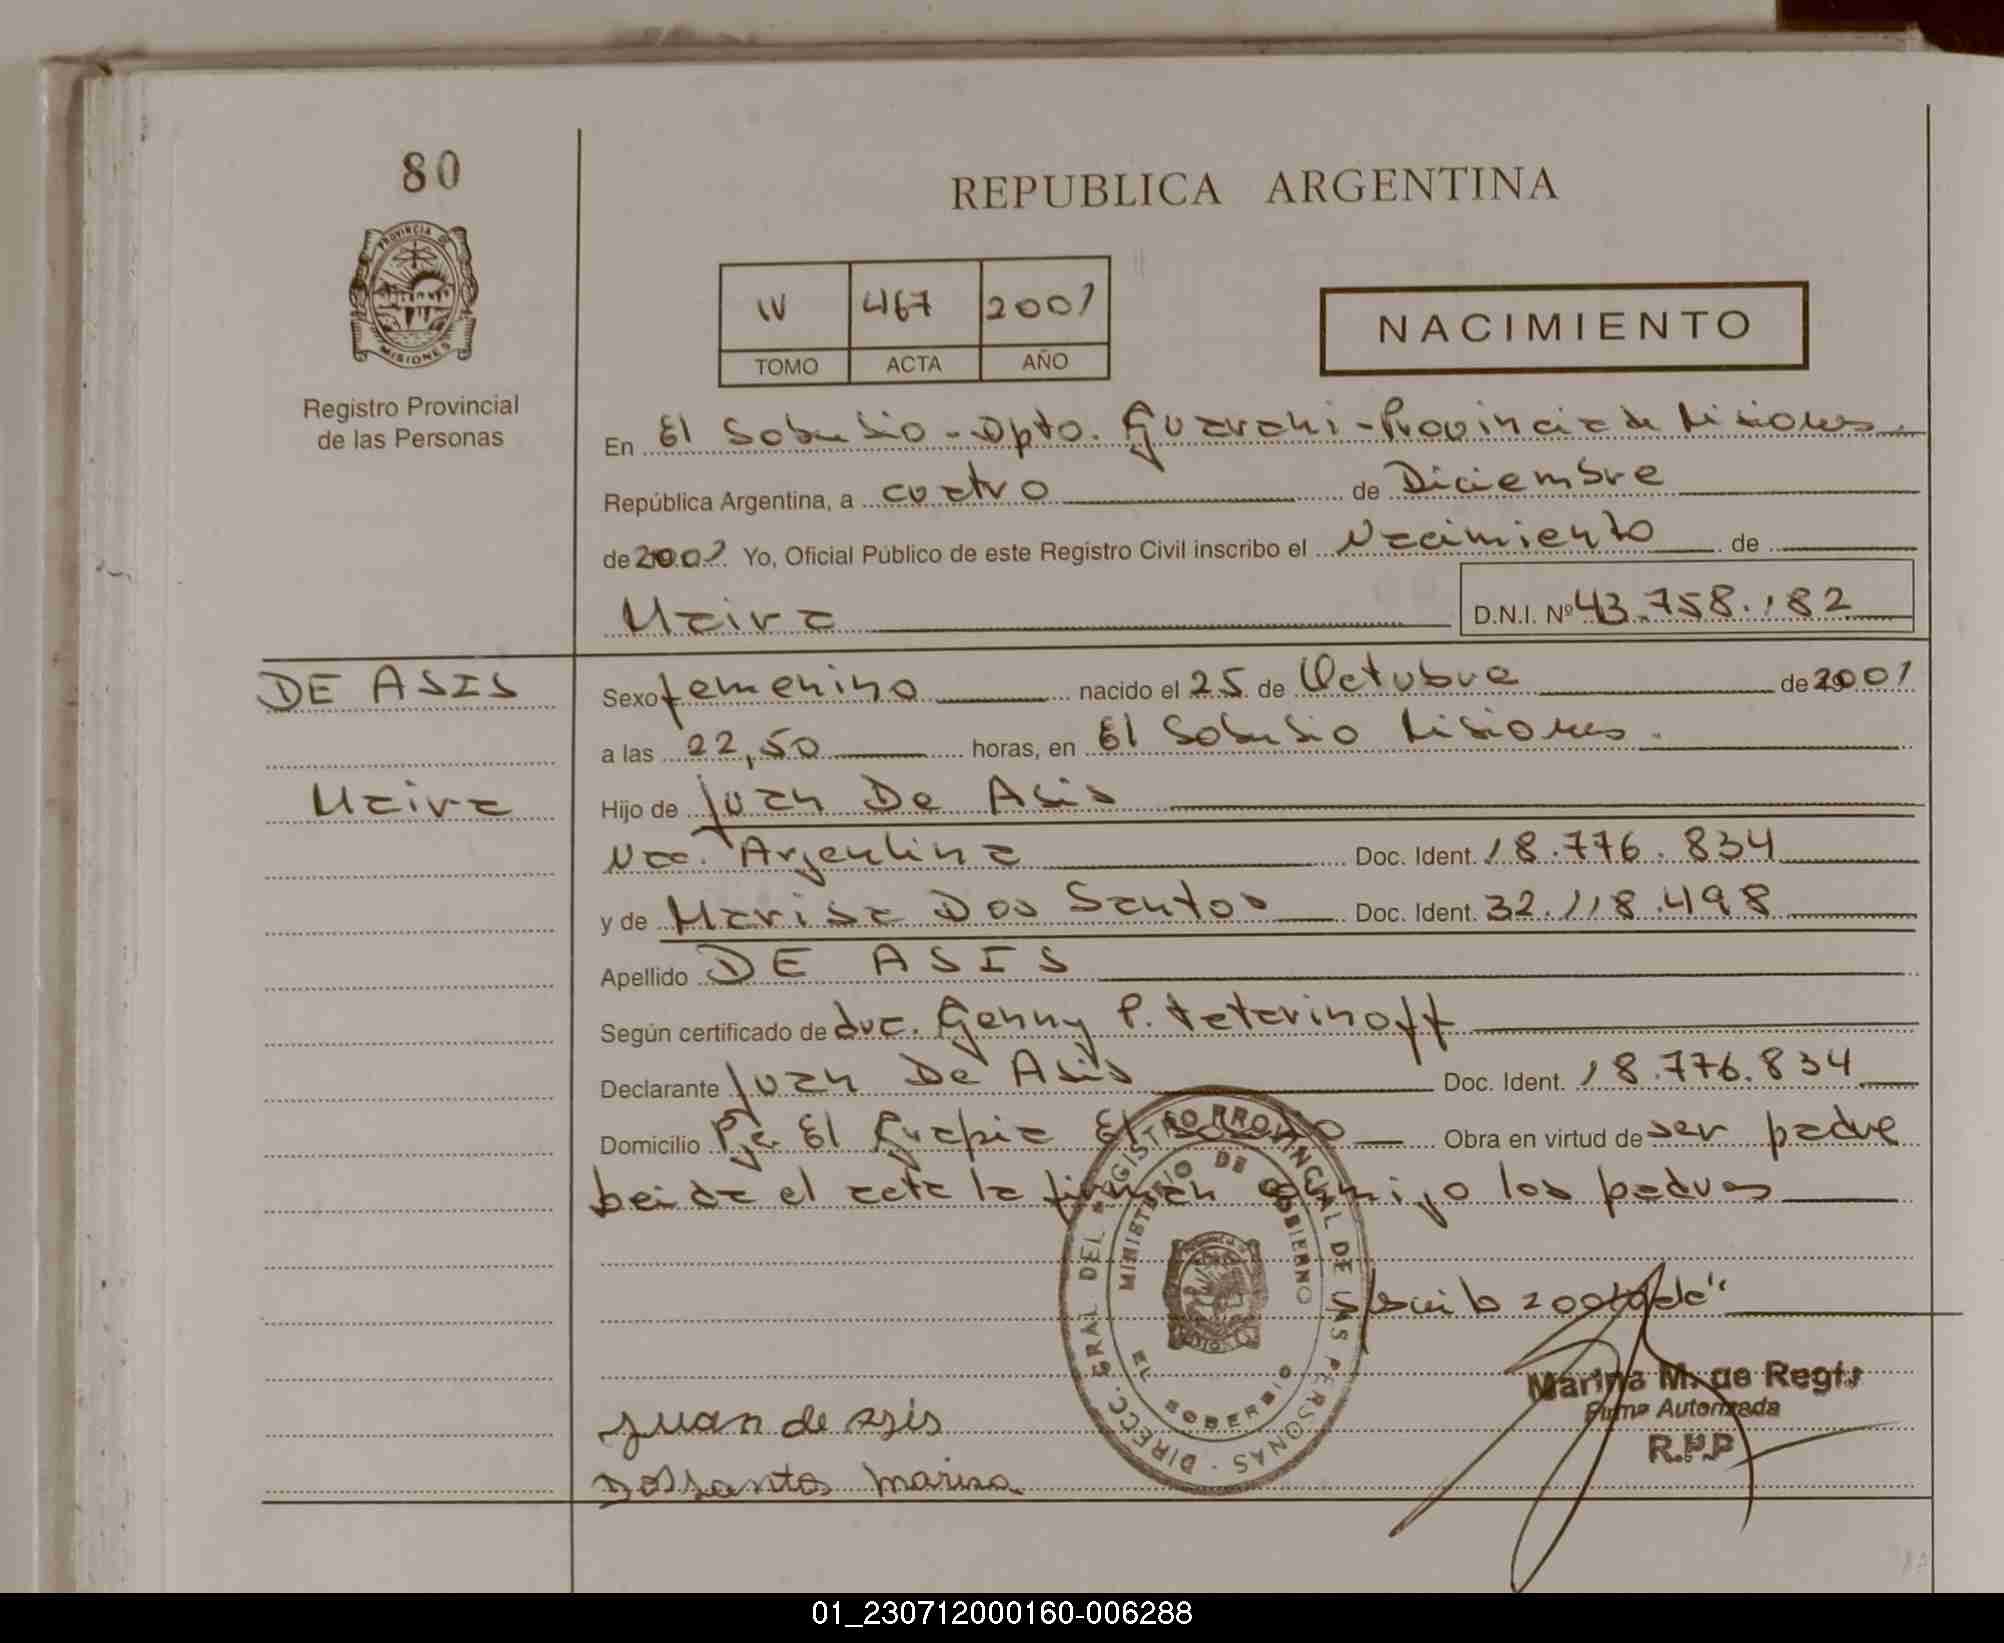 80
REPUBLICA ARGENTINA
PROVINCIA DE
MISIONES
Registro Provincial
de las Personas
IV 467 2001
TOMO ACTA AÑO
NACIMIENTO
En El Soberbio - Dpto. Guarani - Provincia de Misiones.
República Argentina, a cuatro de Diciembre
de 2001 Yo, Oficial Público de este Registro Civil inscribo el Nacimiento de
Maira D.N.I. Nº 43.758.182
DE ASIS
Sexo femenino nacido el 25 de Octubre de 2001
a las 22,50 horas, en El Soberbio Misiones.
Maira
Hijo de Juan De Asis
Nac. Argentina Doc. Ident. 18.776.834
y de Marisa Dos Santos Doc. Ident. 32.118.498
Apellido DE ASIS
Según certificado de Genny P. Teterinoff
Declarante Juan De Asis Doc. Ident. 18.776.834
Domicilio El El Soberbio Obra en virtud de ser padre
leida el acta la firman conmigo los padres
DIRECC. GRAL DEL REGISTRO PROVINCIAL DE LAS PERSONAS
MINISTERIO DE GOBIERNO
EL SOBERBIO
Marina M. de
Firma Autorizada
R.P.P
juan de asis
Dos santos marisa
01_230712000160-006288